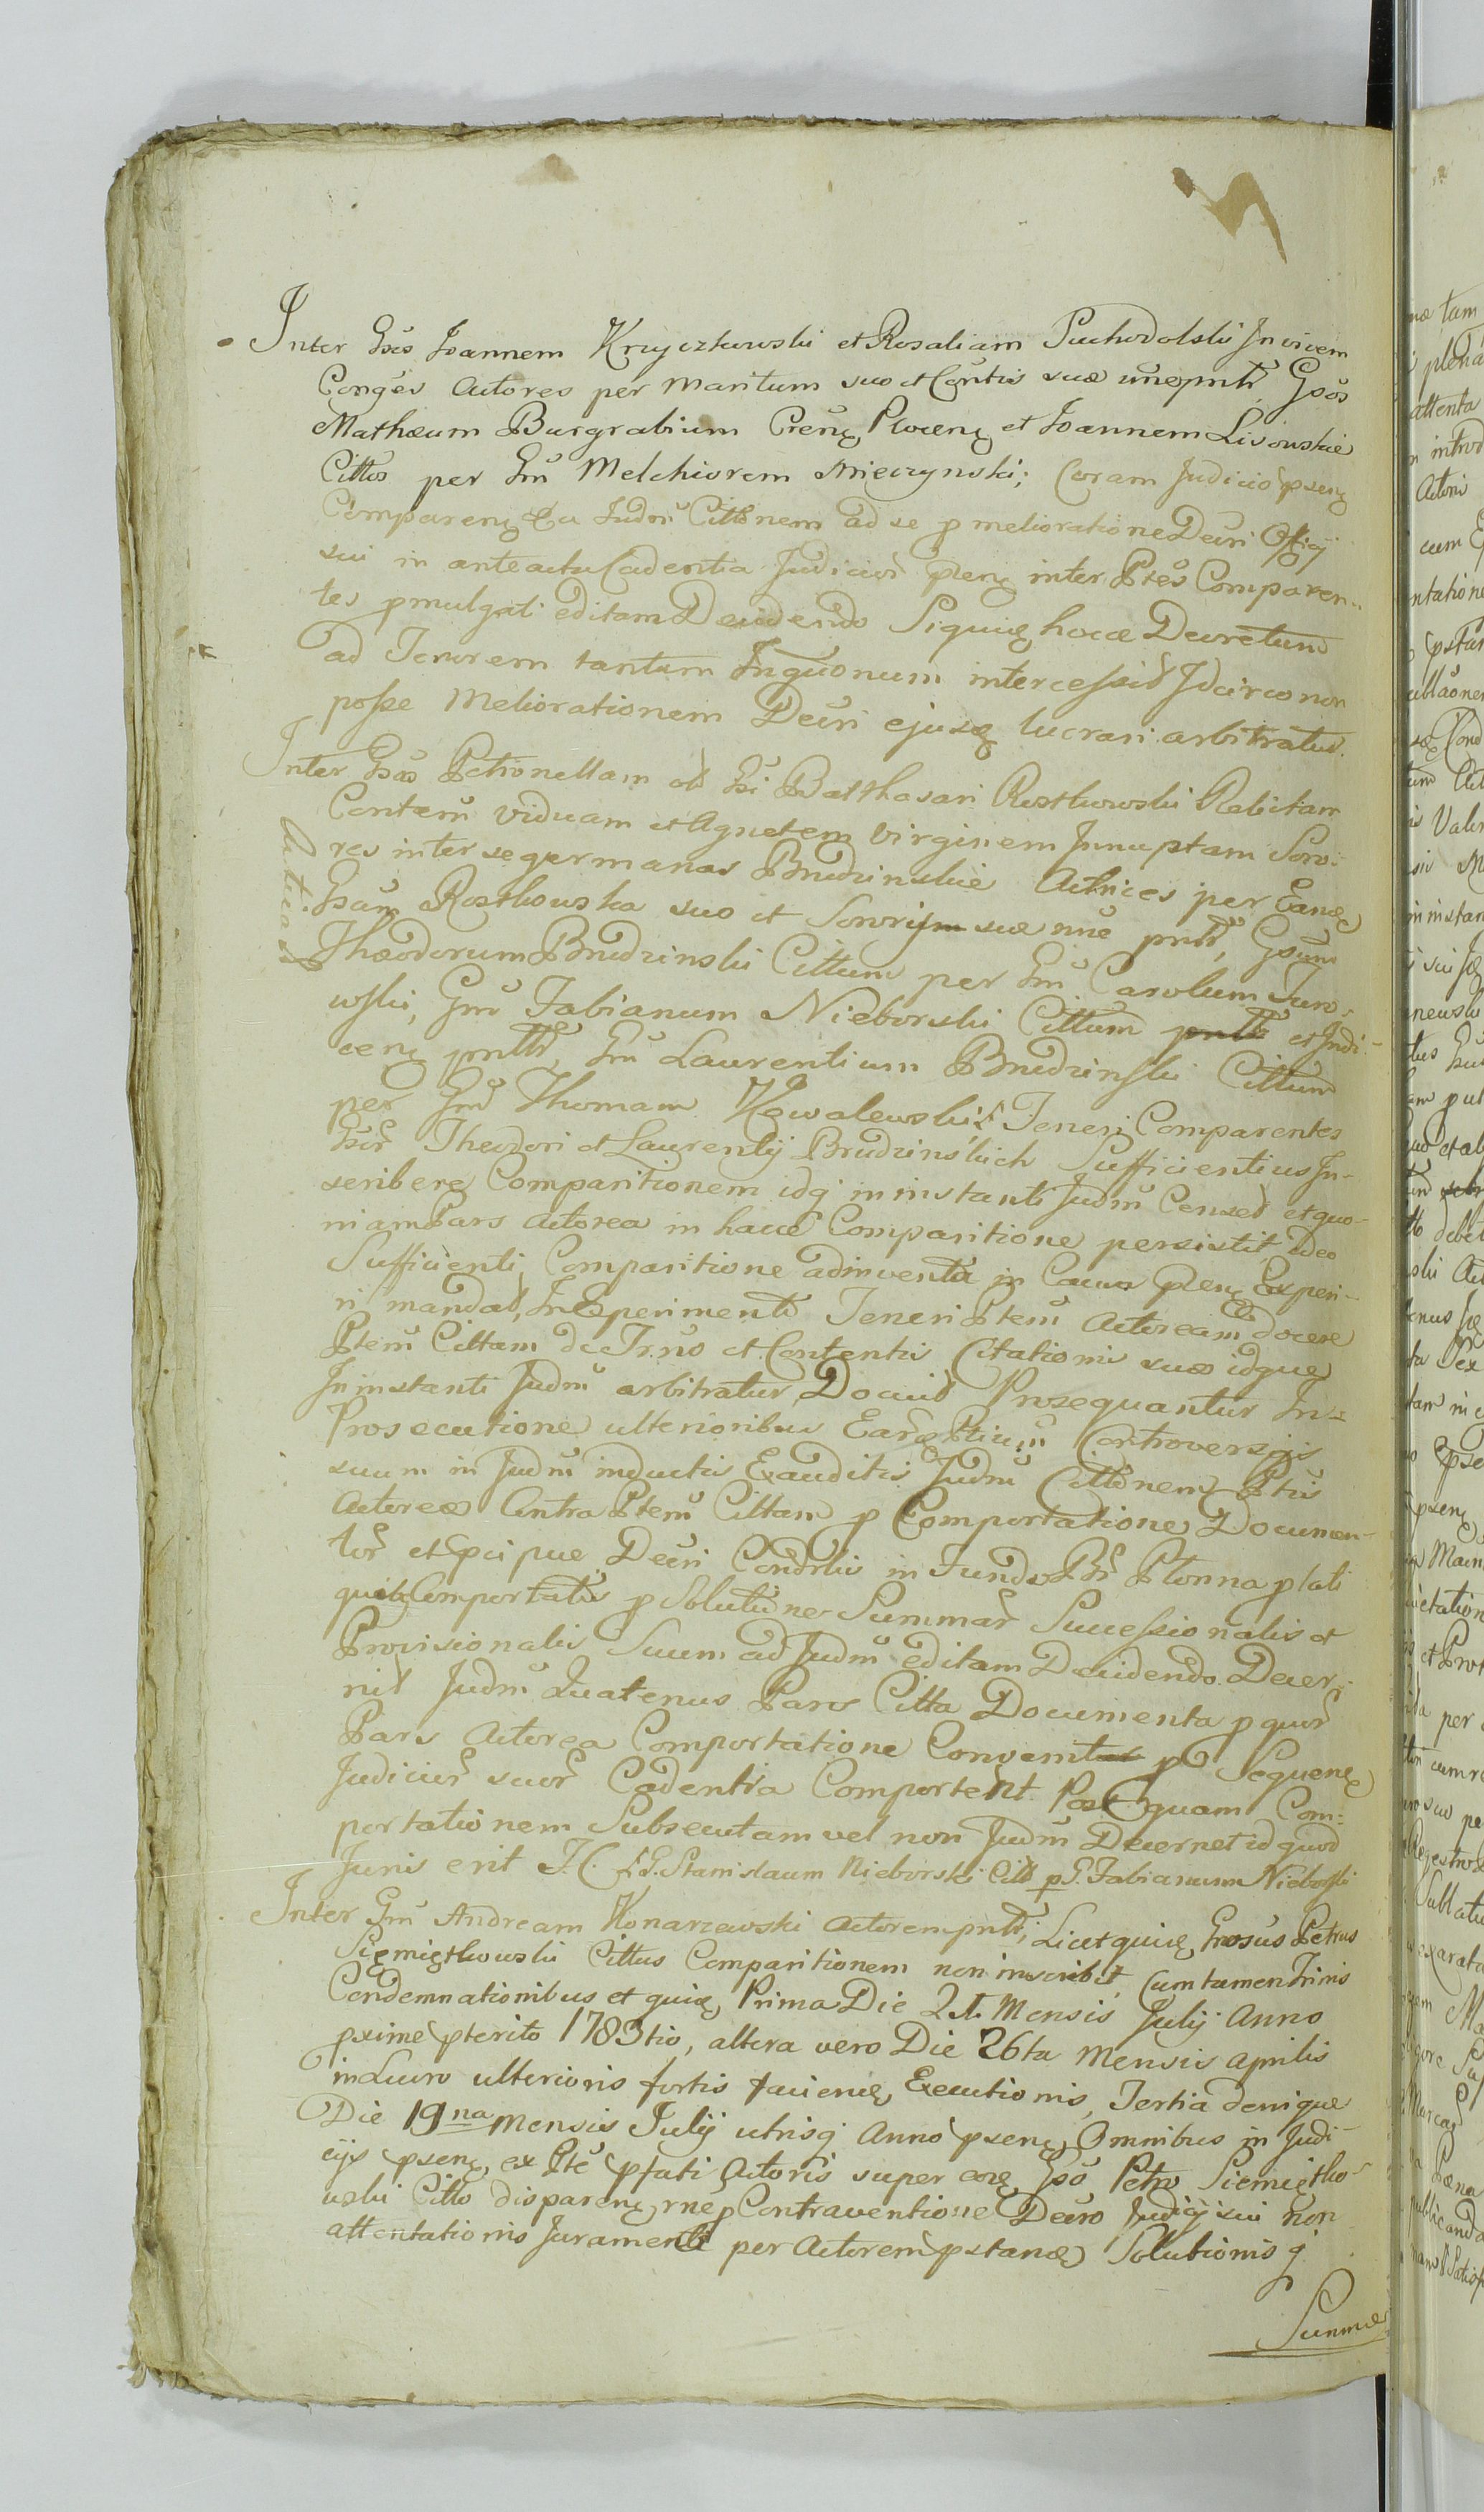 Inter Gsos Joannem Krzyczkowski et Rosaliam Suchodolski Invicem
Conges Actores per Maritum suo et Contis suæ nñe pntt, Gsos
Mathæum Burgrabium Crenẽ Plocenẽ et Joannem Lisowskie
Cittos per Gm Melchiorem Mieczynski; Coram Judicio psenẽ
Comparenẽ Judm Cittonem ad se p melioratione Decri Officij
sui in anteactu Cadentia Judicior plenẽ inter Ptes Comparen-
tes pmulgati editam Decidendo Siquidẽ hocce Decretum
ad Tenorem tantum intercessit Idcirco non
posse Meliorationem Decri ejusdẽ lucrari arbitratur.
Inter Gsas Petronellam olĩ Gsi Balthasari Rostkowski Relictam
Contem viduam et Agnetem Virginem Innuptam Soro-
res inter se germanas Brudzinskie Actrices per Eandẽ
Gsam Rostkowska suo et Sororis suæ nñe pntt, Gsum
Theodorum Brudzinski Cittum per Gm Carolum Turo-
wski, Gm Fabianum Nieborski Cittum et Judi-
cenẽ pntt, Gm Laurentium Brudzinski Cittum
per Gm Thomam Kowalewski, Teneri Comparentes
Gsor Theodori et Laurentij Brudzinskich Sufficientius In-
scribere Comparitionem idq in instanti Judm Censet et quo-
niam Pars Actorea in hacce Comparitione persistit, ideo
Sufficienti Comparitione adinventa in Causa plenẽ Experi-
ri mandat, In Experimento Teneri Ptem Actoream docere
Ptem Cittam de Trnis et Contentis Citationis suæ idque
In instanti Judm arbitratur, Docuit Prosequantur In
Prosecutione ulterioribus Eardẽ Ptium Controversijs
suum in Judm inductis Exauditis Judm Cittonem Ptis
Actoreæ Contra Ptem Cittam p Comportatione Documen-
tor et pcipue Decri Condrlis in Fundo Br Plonna plati
quib Comportatis p Solutione Summar Successionalis et
Provisionalis Suum ad Judm editam Decidendo Decer-
nit Judm Quatenus Pars Citta Documenta p quor
Pars Actorea Comportatione Convenit p Sequenẽ
Judicior suor Cadentia Comportent. Post quam Com-
portationem Subsecutam vel non Judm Decernet id quod
Juris erit J. C. G. Stanislaum Nieborski Citt p G. Fabianum Nieborski
Inter Gm Andream Konarzewski Actorem pntt, Licet quidẽ Grosus Petrus
Siemiętkowski Cittus Comparitionem non inscribit, Cum tamen Trinis
Condemnationibus et quidẽ Prima Die 21 Mensis Julij Anno
pxime pterito 1783tio, altera vero Die 26ta Mensis Aprilis
in Lucro ulterioris fortis faciendẽ Executionis, Tertia denique
Die 19na Mensis Julij utrisq Anno psenẽ, Omnibus in Judi-
cijs psenẽ, ex Pte pfati Actoris super eodẽ Gso Petro Siemiętko-
wski Citto disparenẽ, rne p Contraventione Decro Judij sui non
attentationis Juramenti per Actorem pstandẽ Solutionis q
Summæ